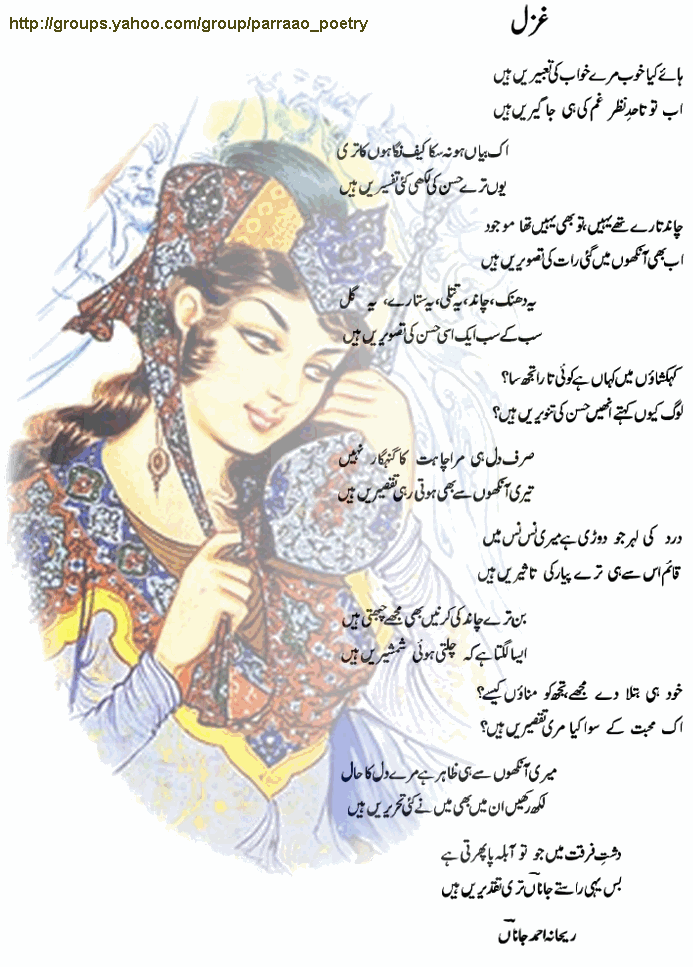 http://groups.yahoo.com/group/parraao_poetry
غزل
ہائے کیا خوب مرے خواب کی تعبیریں ہیں
اب تو تاحدِ نظر غم کی ہی جاگیریں ہیں
اک بیاں ہو نہ سکا کیف نگاہوں کا تری
یوں ترے حسن کی لکھی گئی تفسیریں ہیں
چاند تارے تھے یہیں، تو بھی یہیں تھا موجود
اب بھی آنکھوں میں گئی رات کی تصویریں ہیں
یہ دھنک، چاند، یہ تتلی، یہ ستارے، یہ گل
سب کے سب ایک اسی حسن کی تصویریں ہیں
کہکشاؤں میں کہاں ہے کوئی تارا تجھ سا؟
لوگ کیوں کہتے انھیں حسن کی تنویریں ہیں؟
صرف دل ہی مرا چاہت کا گنہگار نہیں
تیری آنکھوں سے بھی ہوتی رہی تقصیریں ہیں
درد کی لہر جو دوڑی ہے میری نس نس میں
قائم اس سے ہی ترے پیار کی تاثیریں ہیں
بن ترے چاند کی کرنیں بھی مجھے چبھتی ہیں
ایسا لگتا ہے کہ چلتی ہوئی شمشیریں ہیں
خود ہی بتلا دے مجھے، تجھ کو مناؤں کیسے؟
اک محبت کے سوا کیا مری تقصیریں ہیں؟
میری آنکھوں سے ہی ظاہر ہے مرے دل کا حال
لکھ رکھیں ان میں بھی میں نے کئی تحریریں ہیں
دشتِ فرقت میں جو تو آبلہ پا پھرتی ہے
بس یہی راستے جاناںؔ تری تقدیریں ہیں
ریحانہ احمد جاناںؔ